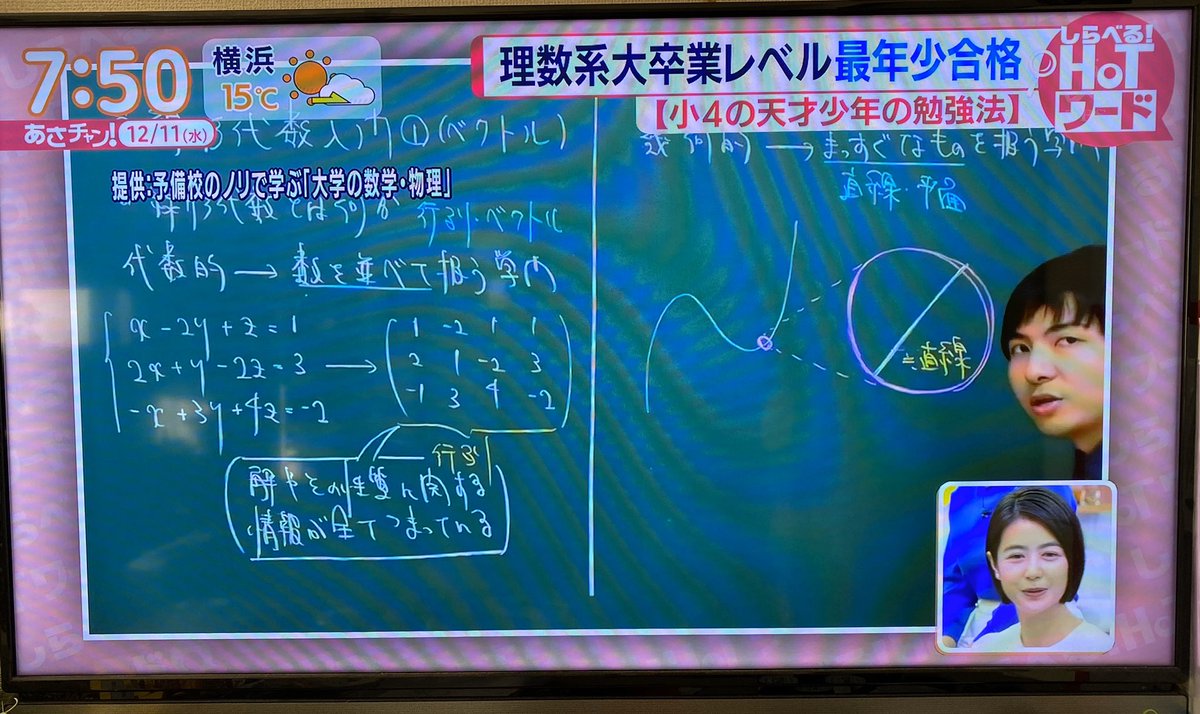 7:50
横浜
15℃
あさチャン! 12/11(水)
理数系大卒業レベル最年少合格
【小4の天才少年の勉強法】
しらべる!
HOT
ワード
代数入門①(ベクトル)
提供:予備校のノリで学ぶ「大学の数学・物理」
線形代数とは何か 行列・ベクトル
代数的 → 数を並べて扱う学問
x - 2y + z = 1
2x + y - 2z = 3
-x + 3y + 4z = -2
→
1 -2 1 1
2 1 -2 3
-1 3 4 -2
行列
解やその性質に関する
情報が全てつまっている
幾何的 → まっすぐなものを扱う学問
直線・平面
≒直線